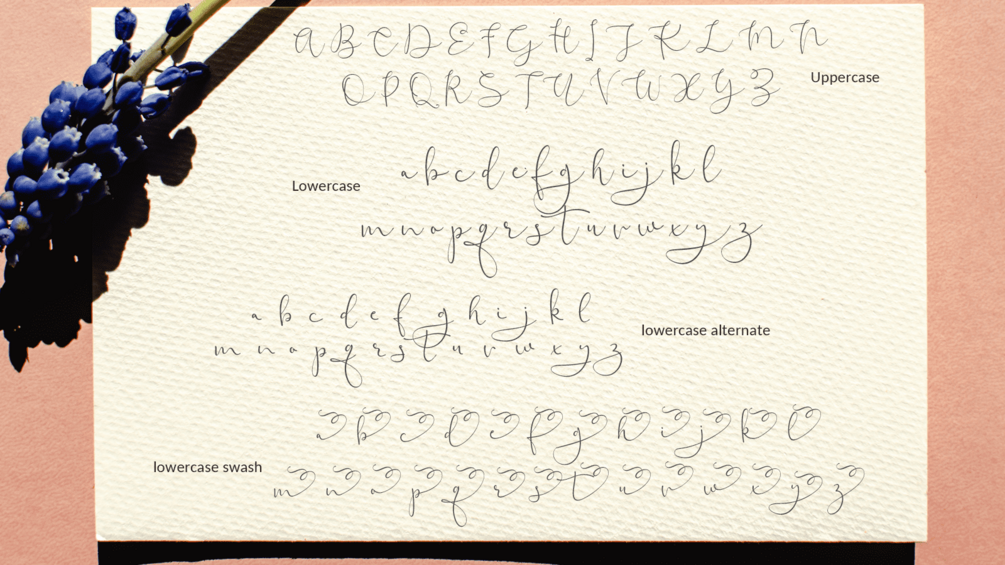 A B C D E F G H I J K L M N
O P Q R S T U V W X Y Z
Uppercase
a b c d e f g h i j k l
Lowercase
m n o p q r s t u v w x y z
a b c d e f g h i j k l
lowercase alternate
m n o p q r s t u v w x y z
a b c d e f g h i j k l
lowercase swash
m n o p q r s t u v w x y z